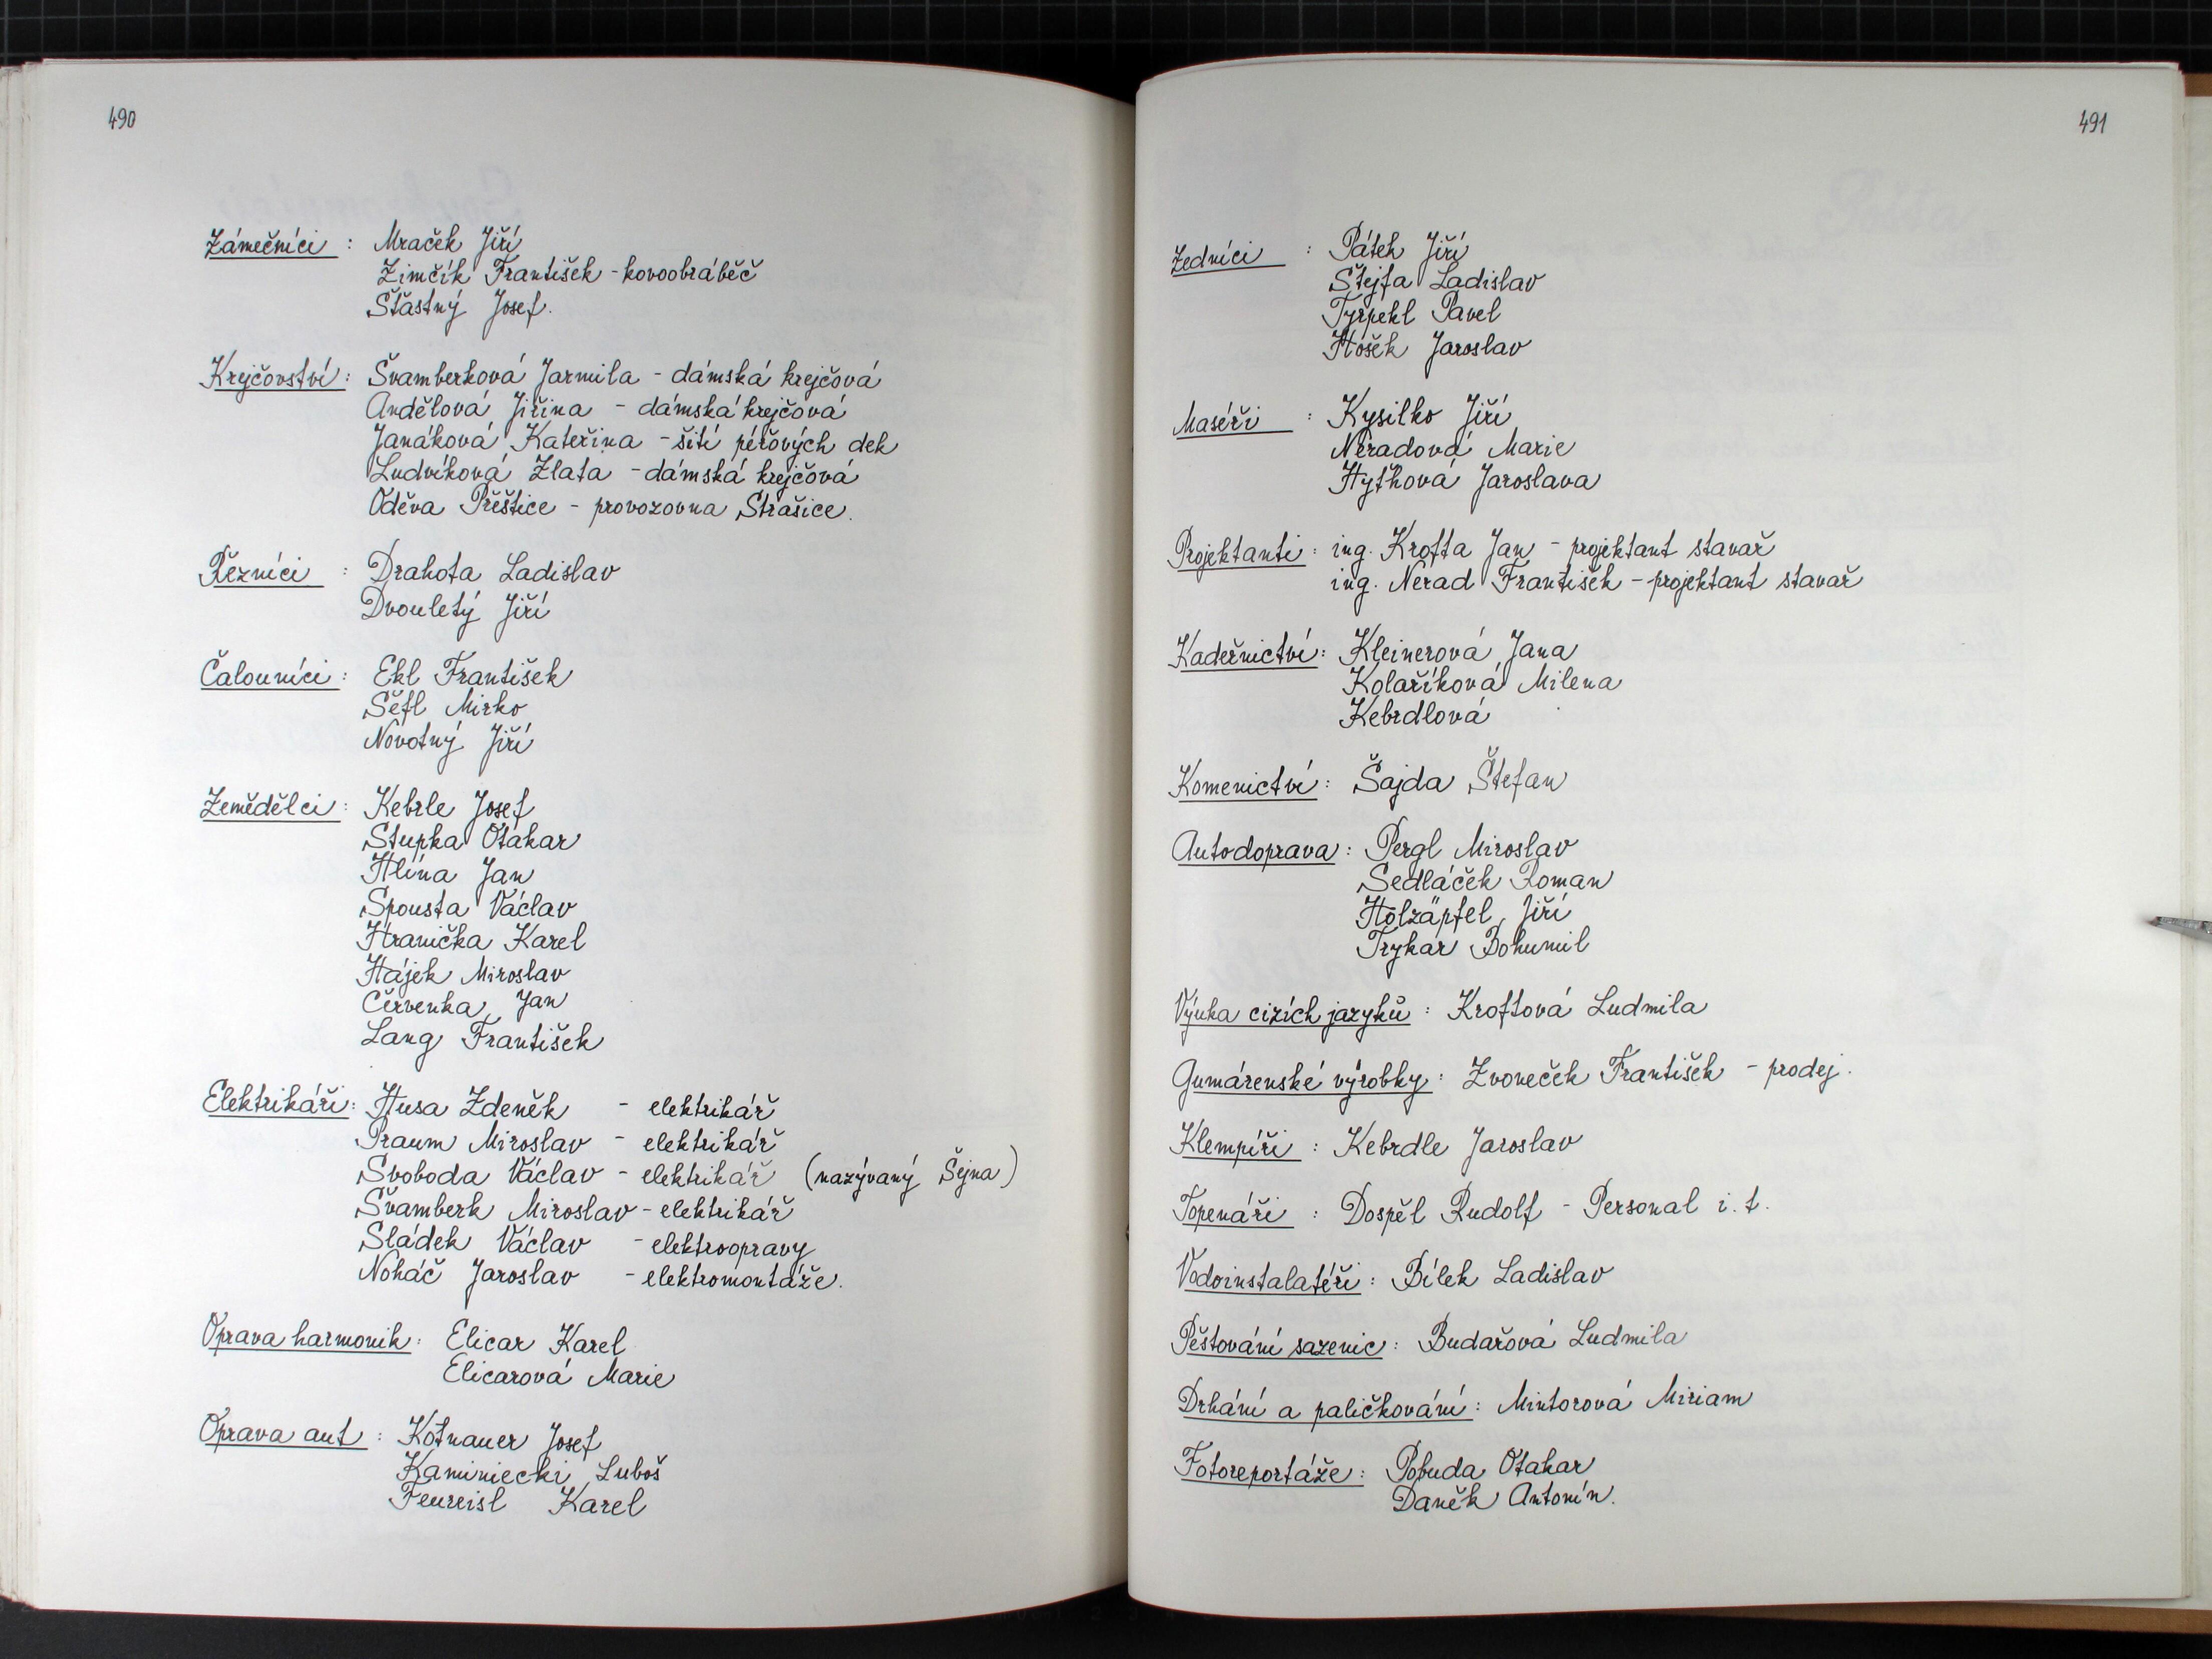 490
Zámečníci : Mraček Jiří
Zimčík František - kovoobráběč
Šťastný Josef.
Krejčovství : Švamberková Jarmila - dámská krejčová
Andělová Jiřina - dámská krejčová
Janáková Kateřina - šití péřových dek
Ludvíková Zlata - dámská krejčová
Oděva Přeštice - provozovna Strašice.
Řezníci : Drahota Ladislav
Dvouletý Jiří
Čalouníci : Ekl František
Šefl Mirko
Novotný Jiří
Zemědělci : Kebrle Josef
Stupka Otakar
Hlína Jan
Spousta Václav
Hranička Karel
Hájek Miroslav
Červenka Jan
Lang František
Elektrikáři : Husa Zdeněk - elektrikář
Praum Miroslav - elektrikář
Svoboda Václav - elektrikář (nazývaný Šejna)
Švamberk Miroslav - elektrikář
Sládek Václav - elektroopravy
Noháč Jaroslav - elektromontáže.
Oprava harmonik : Elicar Karel
Elicarová Marie
Oprava aut : Kotnauer Josef
Kaminiecki Luboš
Feureisl Karel
491
Zedníci : Pátek Jiří
Štejfa Ladislav
Tyrpekl Pavel
Hošek Jaroslav
Maséři : Kysilko Jiří
Neradová Marie
Hythová Jaroslava
Projektanti : ing. Krofta Jan - projektant stavař
ing. Nerad František - projektant stavař
Kadeřnictví : Kleinerová Jana
Kolaříková Milena
Kebrdlová
Komenictví : Šajda Štefan
Autodoprava : Pergl Miroslav
Sedláček Roman
Holzäpfel Jiří
Trykar Bohumil
Výuka cizích jazyků : Kroftová Ludmila
Gumárenské výrobky : Zvoneček František - prodej.
Klempíři : Kebrdle Jaroslav
Topenáři : Dospěl Rudolf - Personal i. t.
Vodoinstalatéři : Bílek Ladislav
Pěstování sazenic : Budařová Ludmila
Drhání a paličkování : Mintorová Miriam
Fotoreportáže : Pobuda Otakar
Daněk Antonín.